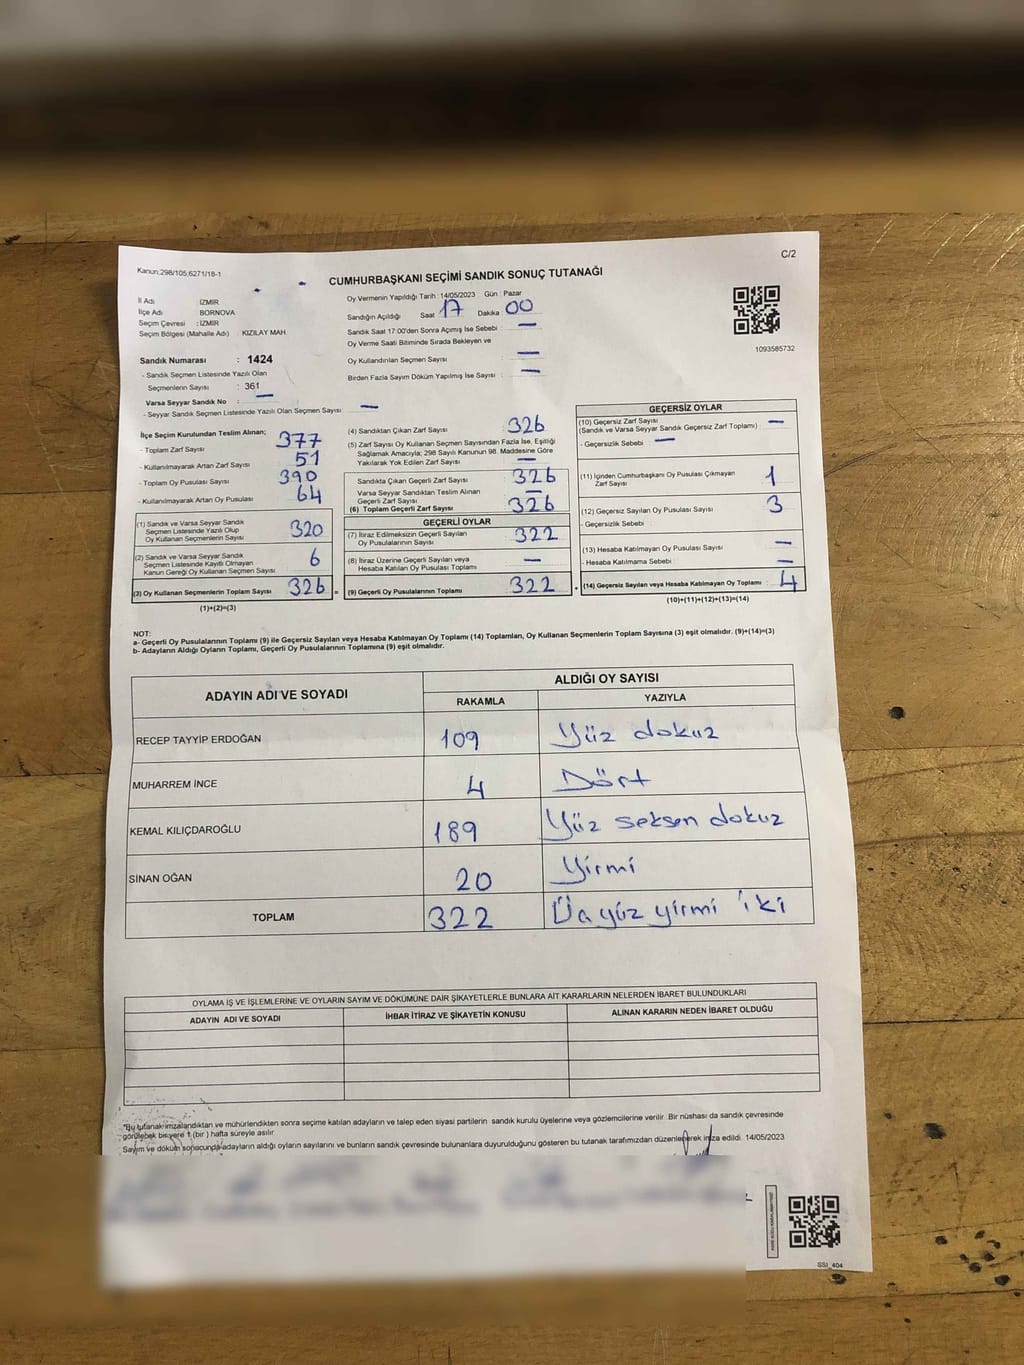 Kanun;298/105;6271/18-1
C/2
CUMHURBAŞKANI SEÇİMİ SANDIK SONUÇ TUTANAĞI
İl Adı : İZMİR
İlçe Adı : BORNOVA
Seçim Çevresi : İZMİR
Seçim Bölgesi (Mahalle Adı) : KIZILAY MAH.
Sandık Numarası : 1424
- Sandık Seçmen Listesinde Yazılı Olan
Seçmenlerin Sayısı : 361
Varsa Seyyar Sandık No : —
- Seyyar Sandık Seçmen Listesinde Yazılı Olan Seçmen Sayısı : —
Oy Vermenin Yapıldığı Tarih : 14/05/2023 Gün : Pazar
Sandığın Açıldığı Saat 17 Dakika 00
Sandık Saat 17:00'den Sonra Açılmış İse Sebebi : —
Oy Verme Saati Bitiminde Sırada Bekleyen ve
Oy Kullandırılan Seçmen Sayısı : —
Birden Fazla Sayım Döküm Yapılmış İse Sayısı : —
1093585732
İlçe Seçim Kurulundan Teslim Alınan;
- Toplam Zarf Sayısı 377
- Kullanılmayarak Artan Zarf Sayısı 51
- Toplam Oy Pusulası Sayısı 390
- Kullanılmayarak Artan Oy Pusulası 64
(1) Sandık ve Varsa Seyyar Sandık
Seçmen Listesinde Yazılı Olup
Oy Kullanan Seçmenlerin Sayısı 320
(2) Sandık ve Varsa Seyyar Sandık
Seçmen Listesinde Kayıtlı Olmayan
Kanun Gereği Oy Kullanan Seçmen Sayısı 6
(3) Oy Kullanan Seçmenlerin Toplam Sayısı 326 =
(1)+(2)=(3)
(4) Sandıktan Çıkan Zarf Sayısı 326
(5) Zarf Sayısı Oy Kullanan Seçmen Sayısından Fazla İse, Eşitliği
Sağlamak Amacıyla; 298 Sayılı Kanunun 98. Maddesine Göre
Yakılarak Yok Edilen Zarf Sayısı —
Sandıkta Çıkan Geçerli Zarf Sayısı 326
Varsa Seyyar Sandıktan Teslim Alınan
Geçerli Zarf Sayısı —
(6) Toplam Geçerli Zarf Sayısı 326
GEÇERLİ OYLAR
(7) İtiraz Edilmeksizin Geçerli Sayılan
Oy Pusulalarının Sayısı 322
(8) İtiraz Üzerine Geçerli Sayılan veya
Hesaba Katılan Oy Pusulası Toplamı —
(9) Geçerli Oy Pusulalarının Toplamı 322 +
GEÇERSİZ OYLAR
(10) Geçersiz Zarf Sayısı
(Sandık ve Varsa Seyyar Sandık Geçersiz Zarf Toplamı) : —
- Geçersizlik Sebebi : —
(11) İçinden Cumhurbaşkanı Oy Pusulası Çıkmayan
Zarf Sayısı 1
(12) Geçersiz Sayılan Oy Pusulası Sayısı : 3
- Geçersizlik Sebebi :
(13) Hesaba Katılmayan Oy Pusulası Sayısı : —
- Hesaba Katılmama Sebebi : —
(14) Geçersiz Sayılan veya Hesaba Katılmayan Oy Toplamı : 4
(10)+(11)+(12)+(13)=(14)
NOT:
a- Geçerli Oy Pusulalarının Toplamı (9) ile Geçersiz Sayılan veya Hesaba Katılmayan Oy Toplamı (14) Toplamları, Oy Kullanan Seçmenlerin Toplam Sayısına (3) eşit olmalıdır. (9)+(14)=(3)
b- Adayların Aldığı Oyların Toplamı, Geçerli Oy Pusulalarının Toplamına (9) eşit olmalıdır.
ADAYIN ADI VE SOYADI
ALDIĞI OY SAYISI
RAKAMLA YAZIYLA
RECEP TAYYİP ERDOĞAN 109 Yüz dokuz
MUHARREM İNCE 4 Dört
KEMAL KILIÇDAROĞLU 189 Yüz seksen dokuz
SİNAN OĞAN 20 Yirmi
TOPLAM 322 yirmi iki
OYLAMA İŞ VE İŞLEMLERİNE VE OYLARIN SAYIM VE DÖKÜMÜNE DAİR ŞİKAYETLERLE BUNLARA AİT KARARLARIN NELERDEN İBARET BULUNDUKLARI
ADAYIN ADI VE SOYADI İHBAR İTİRAZ VE ŞİKAYETİN KONUSU ALINAN KARARIN NEDEN İBARET OLDUĞU
*Bu tutanak imzalandıktan ve mühürlendikten sonra seçime katılan adayların ve talep eden siyasi partilerin sandık kurulu üyelerine veya gözlemcilerine verilir. Bir nüshası da sandık çevresinde
görülebilecek bir yere 1 (bir) hafta süreyle asılır.
Sayım ve döküm sonucunda adayların aldığı oyların sayılarını ve bunların sandık çevresinde bulunanlara duyurulduğunu gösteren bu tutanak tarafımızdan düzenlenerek imza edildi. 14/05/2023
SSI_404